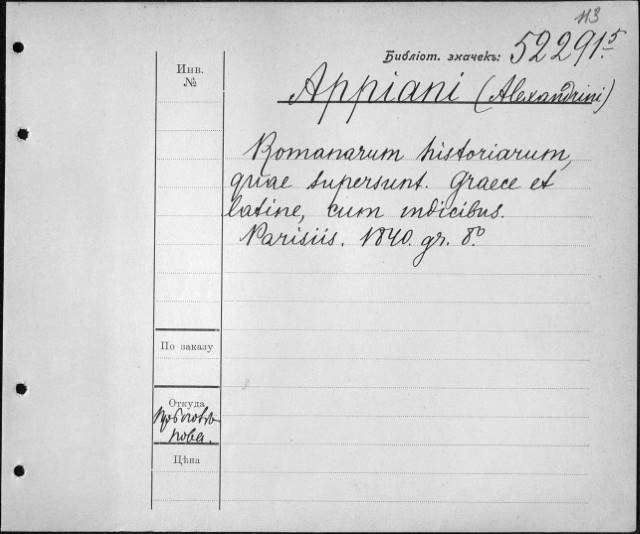 113
Библіот. значекъ: 52291.5
Инв.
№
Appiani (Alexandrini)
Romanarum historiarum,
quae supersunt. Graece et
latine, cum indicibus.
Parisiis. 1840. gr. 8º.
По заказу
Откуда
Цѣна